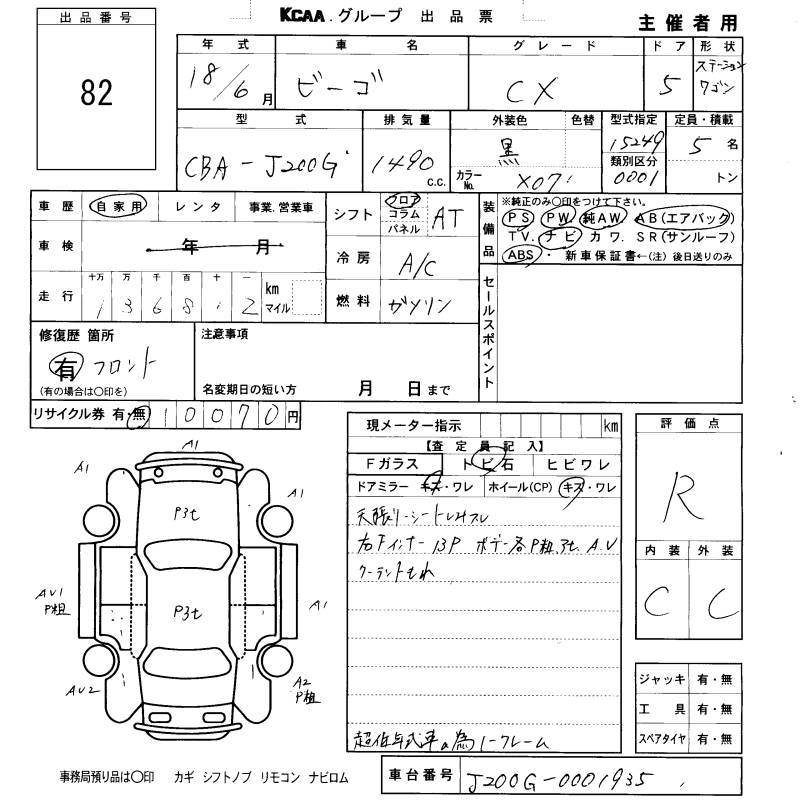 KCAA.グループ 出品票
主催者用
出品番号
82
年式
車名
グレード
ドア
形状
18/6月
ビーゴ
CX
5
ステーション
ワゴン
型式
排気量
外装色
色替
型式指定
定員・積載
CBA-J200G
1490
C.C.
黒
カラーNo.
X07
15249
類別区分
0001
5名
トン
車歴
自家用
レンタ
事業.営業車
車検
年 月
走行
十万 万 千 百 十 一
136812
km
マイル
シフト
フロア
コラム
パネル
AT
冷房
A/C
燃料
ガソリン
装備品
※純正のみ○印をつけて下さい。
PS PW 純AW AB(エアバック)
TV. ナビ カワ. SR(サンルーフ)
ABS ・ 新車保証書←(注) 後日送りのみ
セールスポイント
修復歴 箇所
有 フロント
(有の場合は○印を)
注意事項
名変期日の短い方 月 日まで
リサイクル券 有・無 10070円
現メーター指示 km
【査定員記入】
Fガラス トビ石 ヒビワレ
ドアミラー キズ・ワレ ホイール(CP) キズ・ワレ
天張リーシートレオスレ
右Fインナー13P ボデー各P粗.3t.A.U
クーラントもれ
超低年式車の為ノークレーム
評価点
R
内装
外装
C
C
ジャッキ 有・無
工具 有・無
スペアタイヤ 有・無
A1
A1
A1
P3t
AU1
P粗
P3t
A1
AU2
A2
P粗
事務局預り品は○印 カギ シフトノブ リモコン ナビロム
車台番号
J200G-0001935